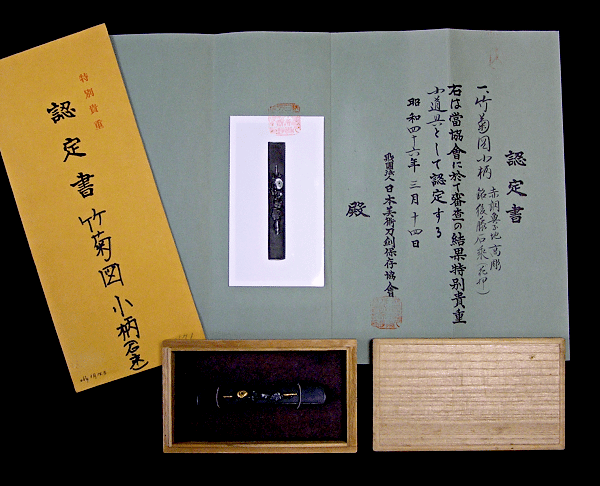 認定書
一、竹菊図小柄 赤銅魚子地高彫
銘後藤石乗(花押)
右は當協會に於て審査の結果特別貴重
小道具として認定する
昭和四十六年三月十四日
財團法人日本美術刀剣保存協會
殿
特別貴重
認定書
竹菊図
小柄